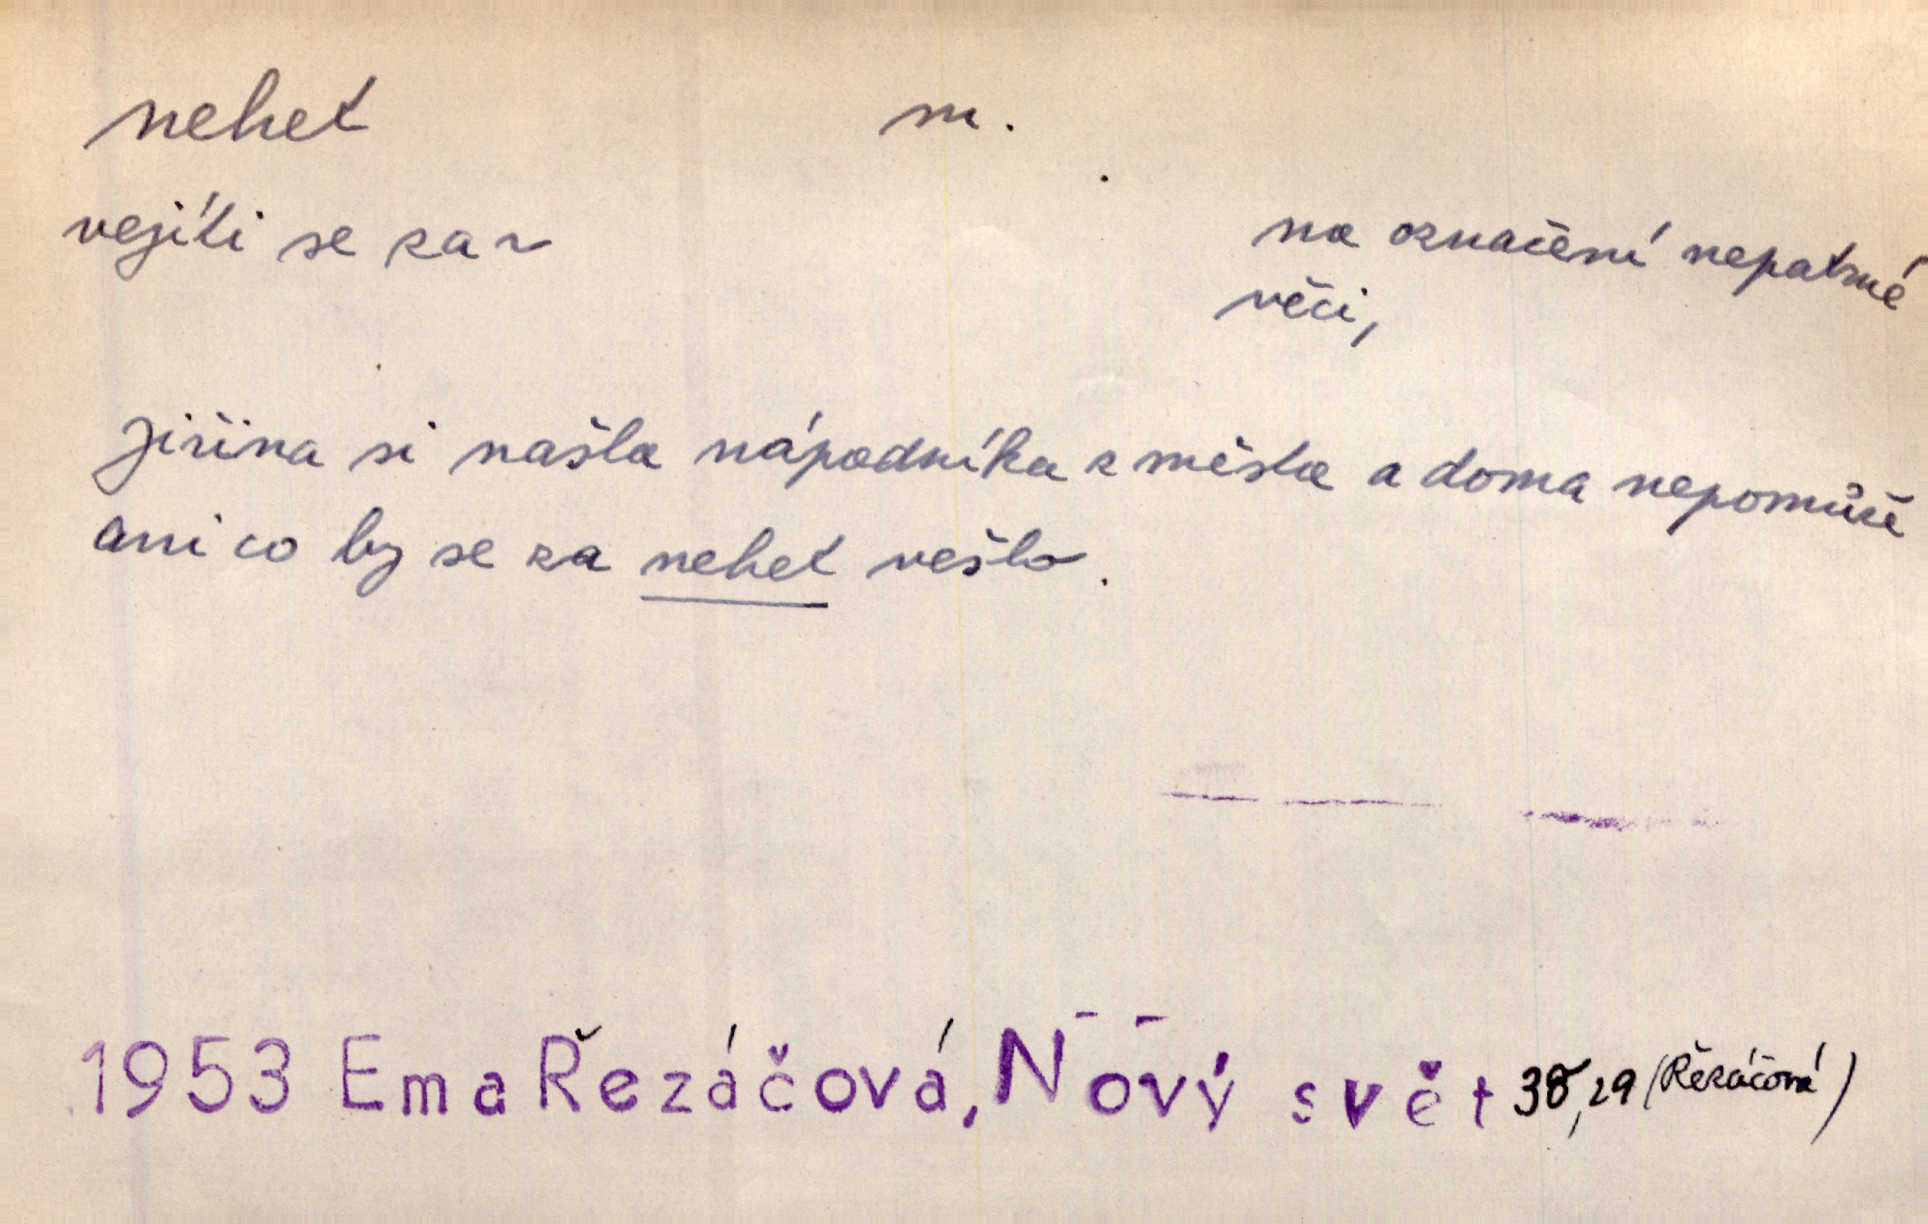 nehet m.
vejíti se za ~ na označení nepatrné
věci,
Jiřina si našla nápadníka z města a doma nepomůže
ani co by se za nehet vešlo.
1953 Ema Řezáčová, Nový svět 38,29 (Řezáčová)